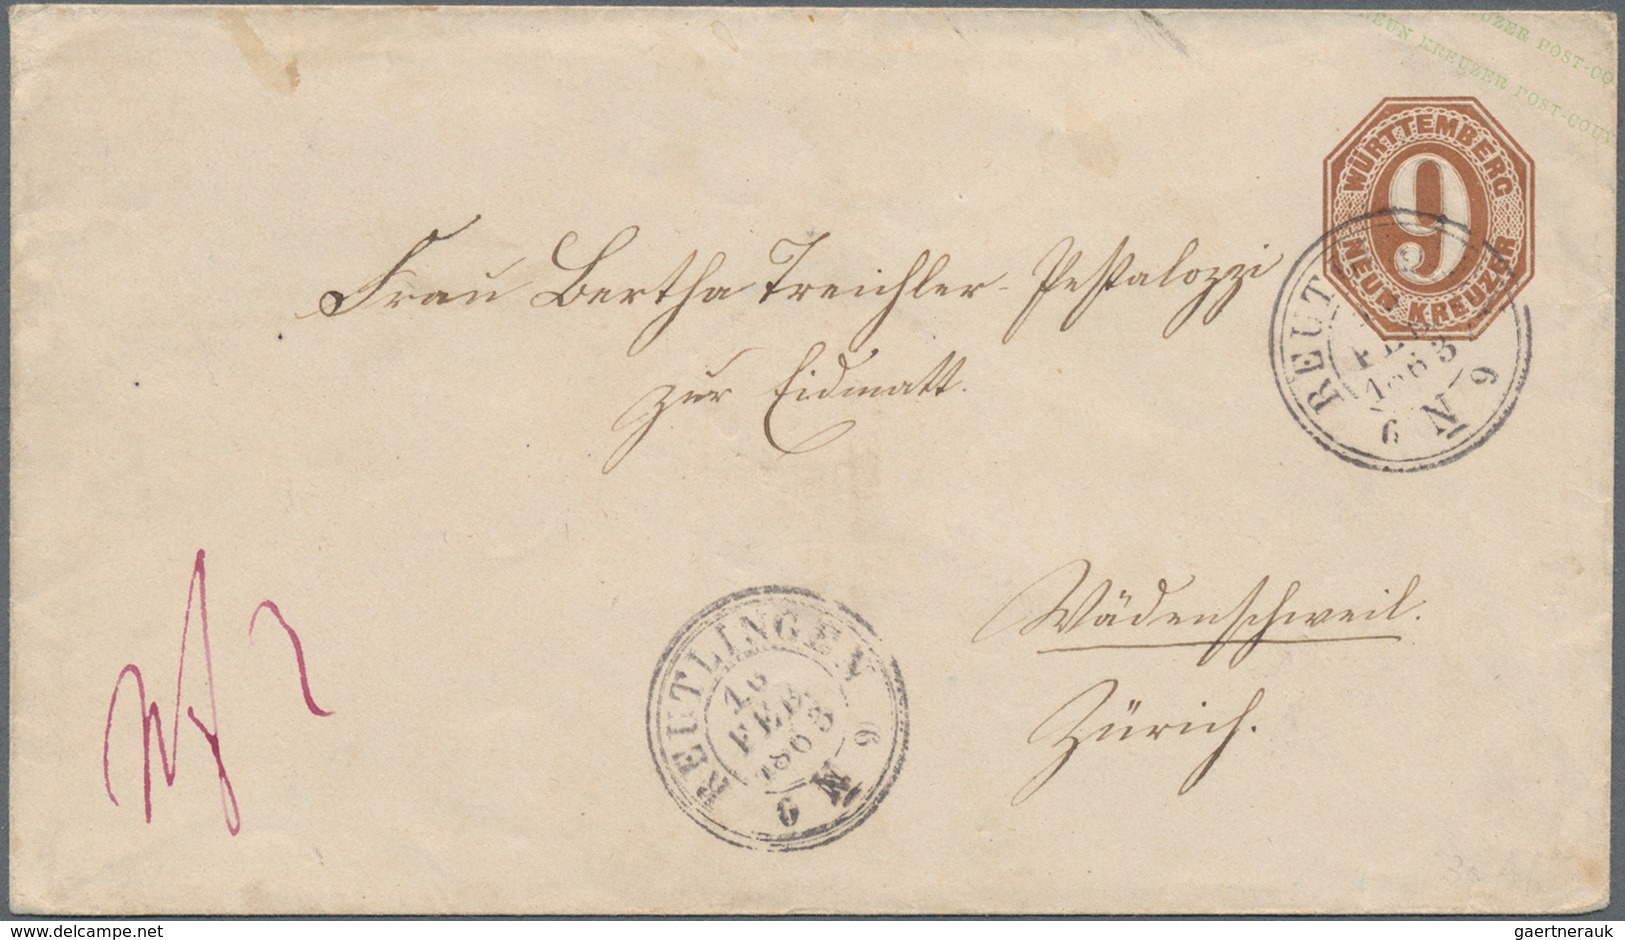 UZER POST-CO
NEUN KREUZER POST-COUV
WÜRTTEMBERG
9
NEUN KREUZER
REUT
FEB
1863
6 N 6
Frau Bertha Treichler-Pestalozzi
zur Eidmatt.
Wädenschweil.
Zürich.
REUTLINGEN
16
FEB.
1863
6 N 6
delcampe.net
gaertnerauk